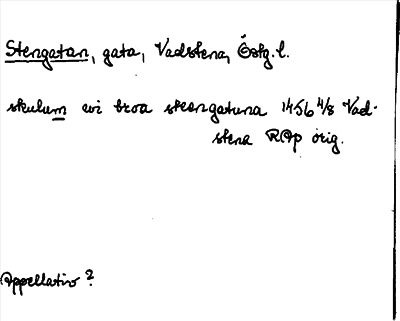 Stengatan, gata, Vadstena, Östg. l.
skulum wi broa steengatuna 1456 4/8 Vad-
stena RAp orig.
Appellativ?